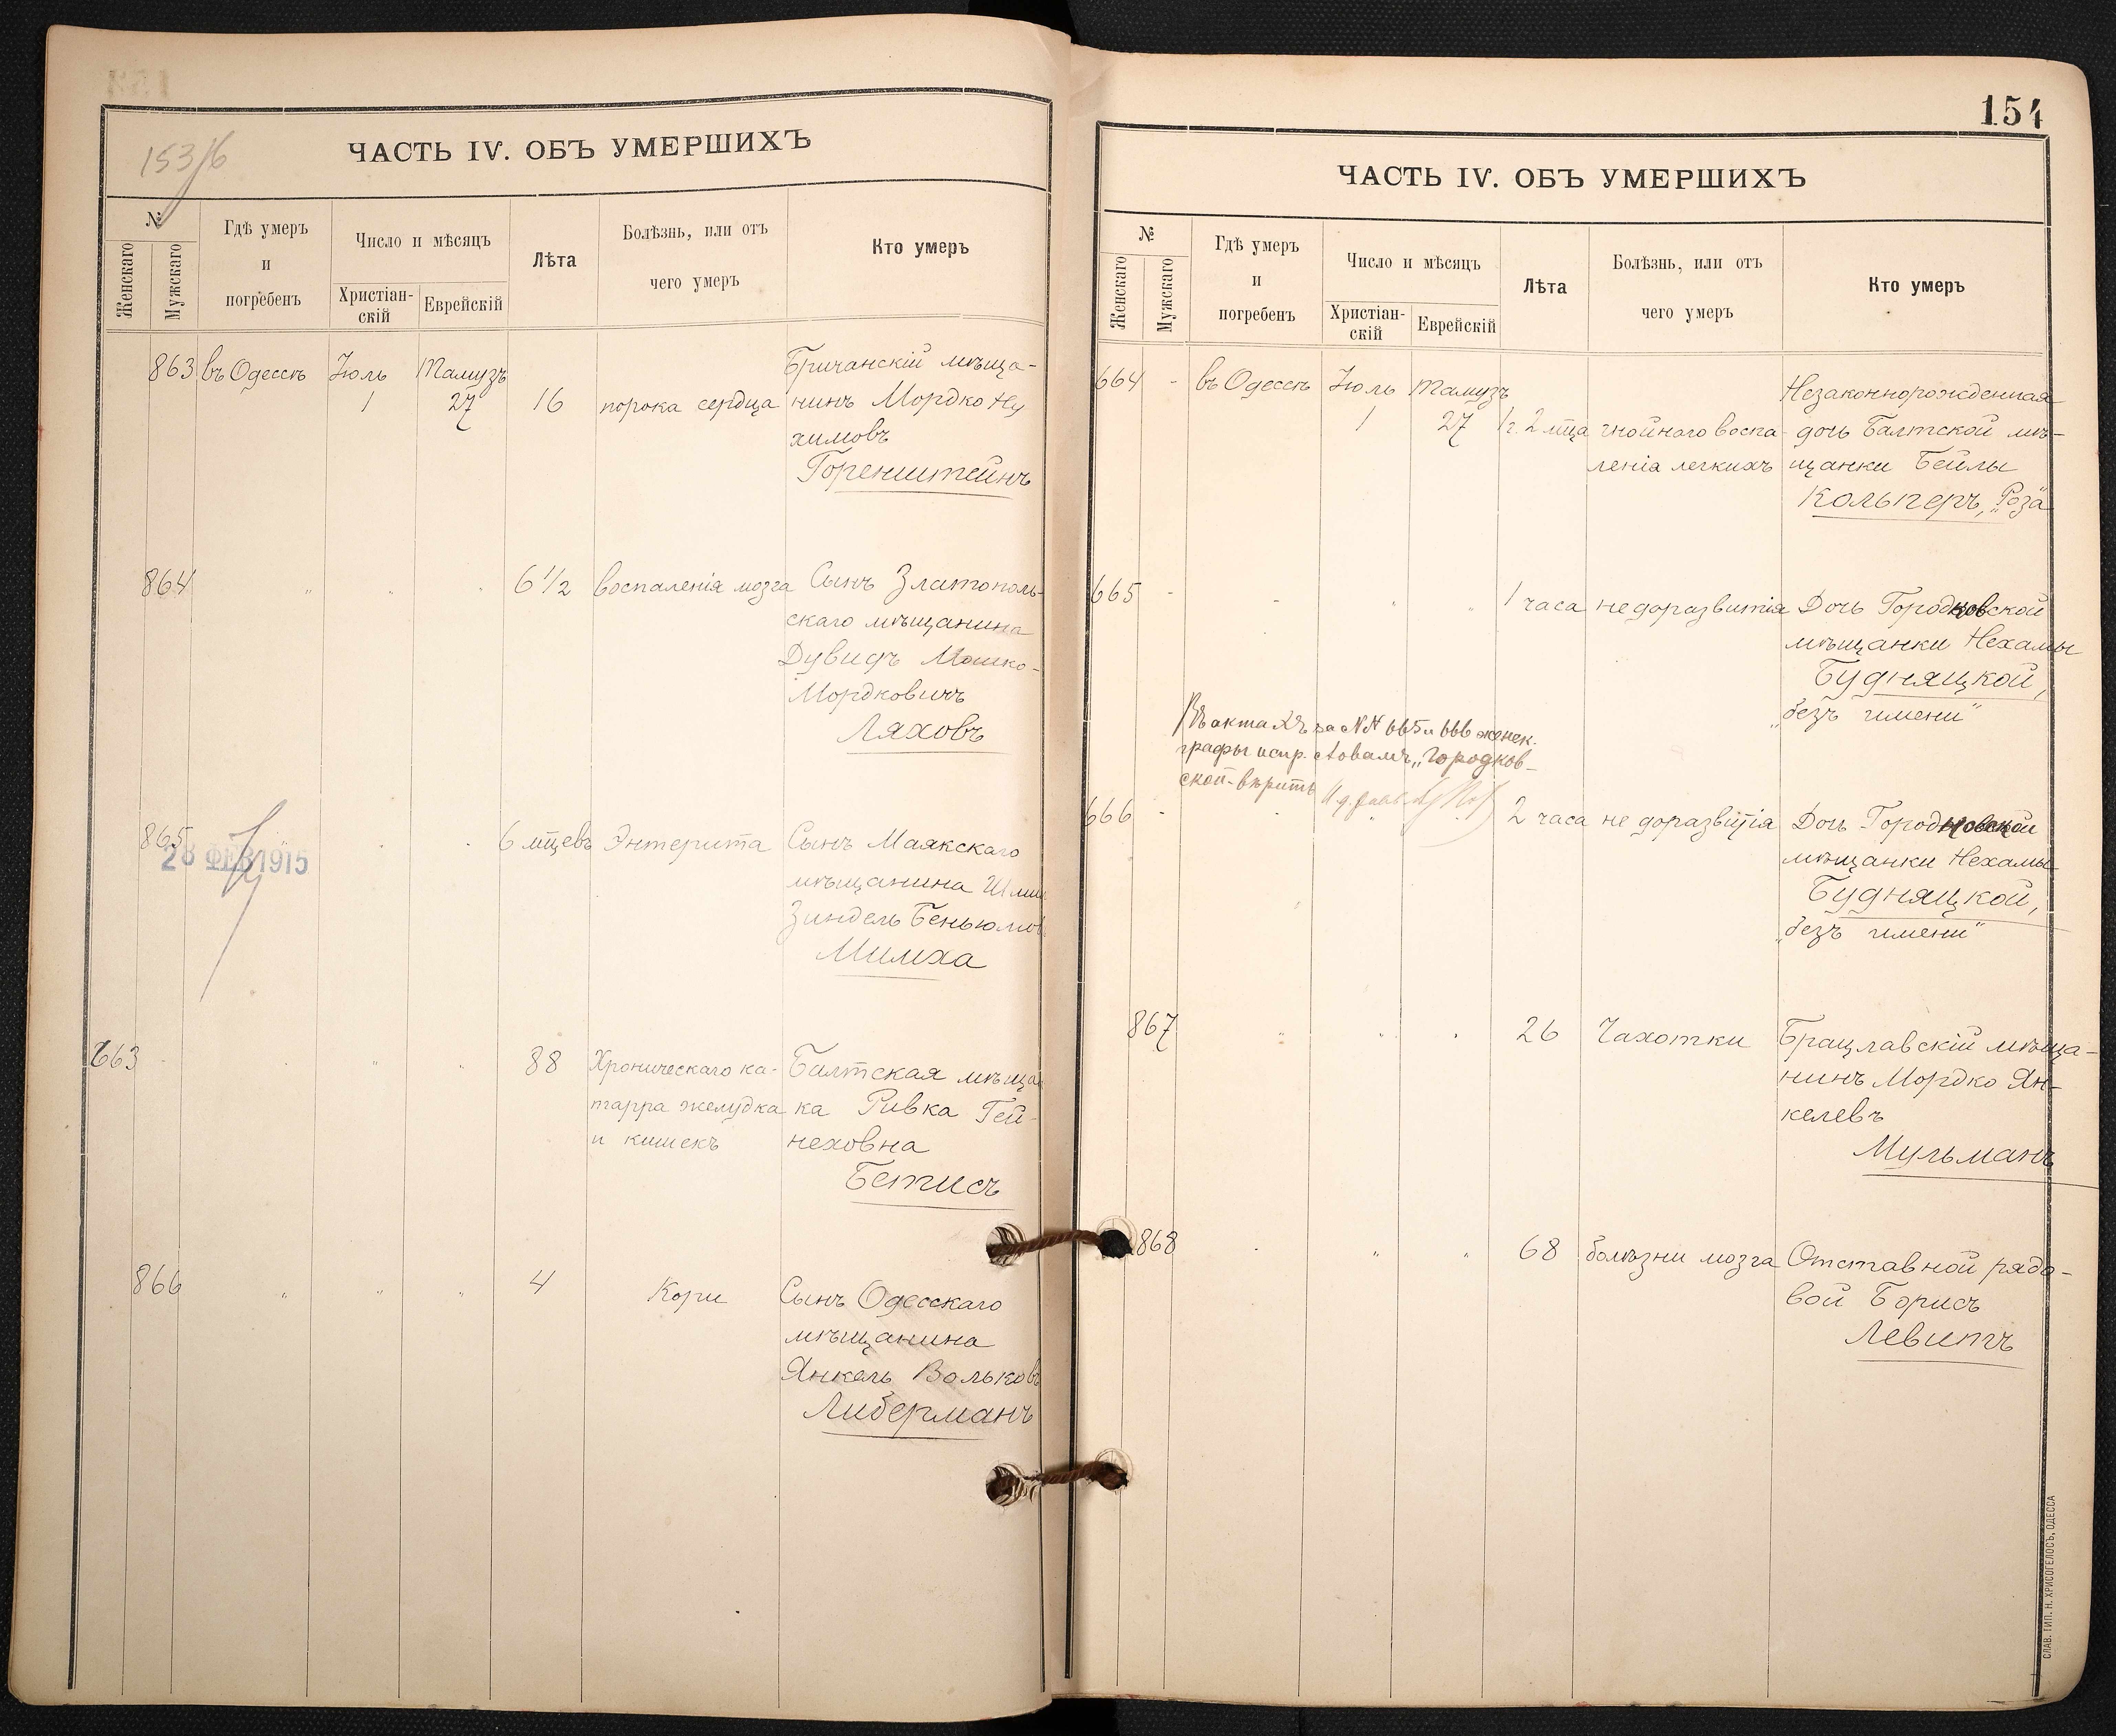 153/б
ЧАСТЬ IV. ОБЪ УМЕРШИХЪ
№
Женскаго
Мужскаго
Гдѣ умеръ
и
погребенъ
Число и мѣсяцъ
Христіан-
скій
Еврейскій
Лѣта
Болѣзнь, или отъ
чего умеръ
Кто умеръ
863 въ Одессѣ Іюль Тамузъ Бричанскій мѣща-
1 27 16 порока сердца нинъ Мордко Ну
химовъ
Горенштейнъ
864 " " " 6 1/2 воспаленія мозга Сынъ Златополь-
скаго мѣщанина
Дувидъ Мошко-
Мордковичъ
Ляховъ
865 6 мцевъ Энтерита Сынъ Маякскаго
28 ФЕВ 1915
мѣщанина
Зиндель Беньюмов
Милиха
663 " " 88 Хроническаго ка- Балтская мѣщан
тарра желудка ка Ривка Гей-
и кишекъ неховна
Бетисъ
866 " " " 4 Кори Сынъ Одесскаго
мѣщанина
Янкель Вольковъ
Либерманъ
154
ЧАСТЬ IV. ОБЪ УМЕРШИХЪ
№
Женскаго
Мужскаго
Гдѣ умеръ
и
погребенъ
Число и мѣсяцъ
Христіан-
скій
Еврейскій
Лѣта
Болѣзнь, или отъ
чего умеръ
Кто умеръ
664 - въ Одессѣ Іюль Тамузъ Незаконнорожденная
1 27 1 г. 2 мца гнойнаго воспа- дочь Балтской мѣ-
ленія легкихъ щанки Бейлы
Кольперъ, "Роза"
665 - - " " 1 часа недоразвитія Дочь Городковской
мѣщанки Нехамы
Будняцкой,
"безъ имени"
Въ актахъ за №№ 665 и 666 женск.
графы испр. словамъ "Городков-
ской - вѣрить
666 - " 2 часа не доразвитія Дочь Городковской
мѣщанки Нехамы
Будняцкой,
"безъ имени"
867 " " " 26 Чахотки Брацлавскій мѣща-
нинъ Мордко Ян-
келевъ
Мульманъ
868 " " " 68 болѣзни мозга Отставной рядо-
вой Борисъ
Левитъ
СЛАВ. ТИП. Н. ХРИСОГЕЛОСЪ, ОДЕССА